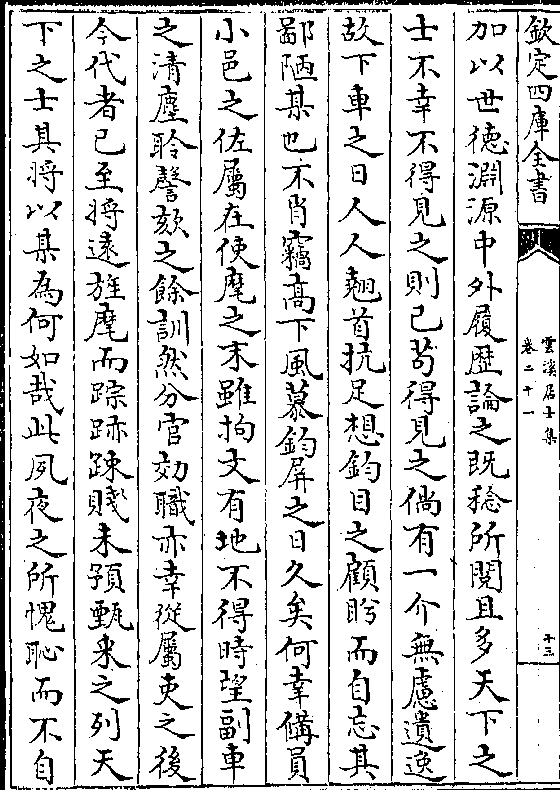 欽定四庫全書
雲溪居士集
卷二十一
十三
加以世德淵源中外履歴論之既稔所閱且多天下之
士不幸不得見之則已茍得見之倘有一介無慮遺逸
故下車之日人人翹首抗足想鈞目之顧眄而自忘其
鄙陋某也不肖竊高下風慕鈞屏之日久矣何幸備員
小邑之佐屬在使麾之末雖拘文有地不得時望副車
之清塵聆謦欬之餘訓然分官効職亦幸從屬吏之後
今代者已至將遠旌麾而踪跡踈賤未預甄采之列天
下之士其將以某為何如哉此夙夜之所愧恥而不自